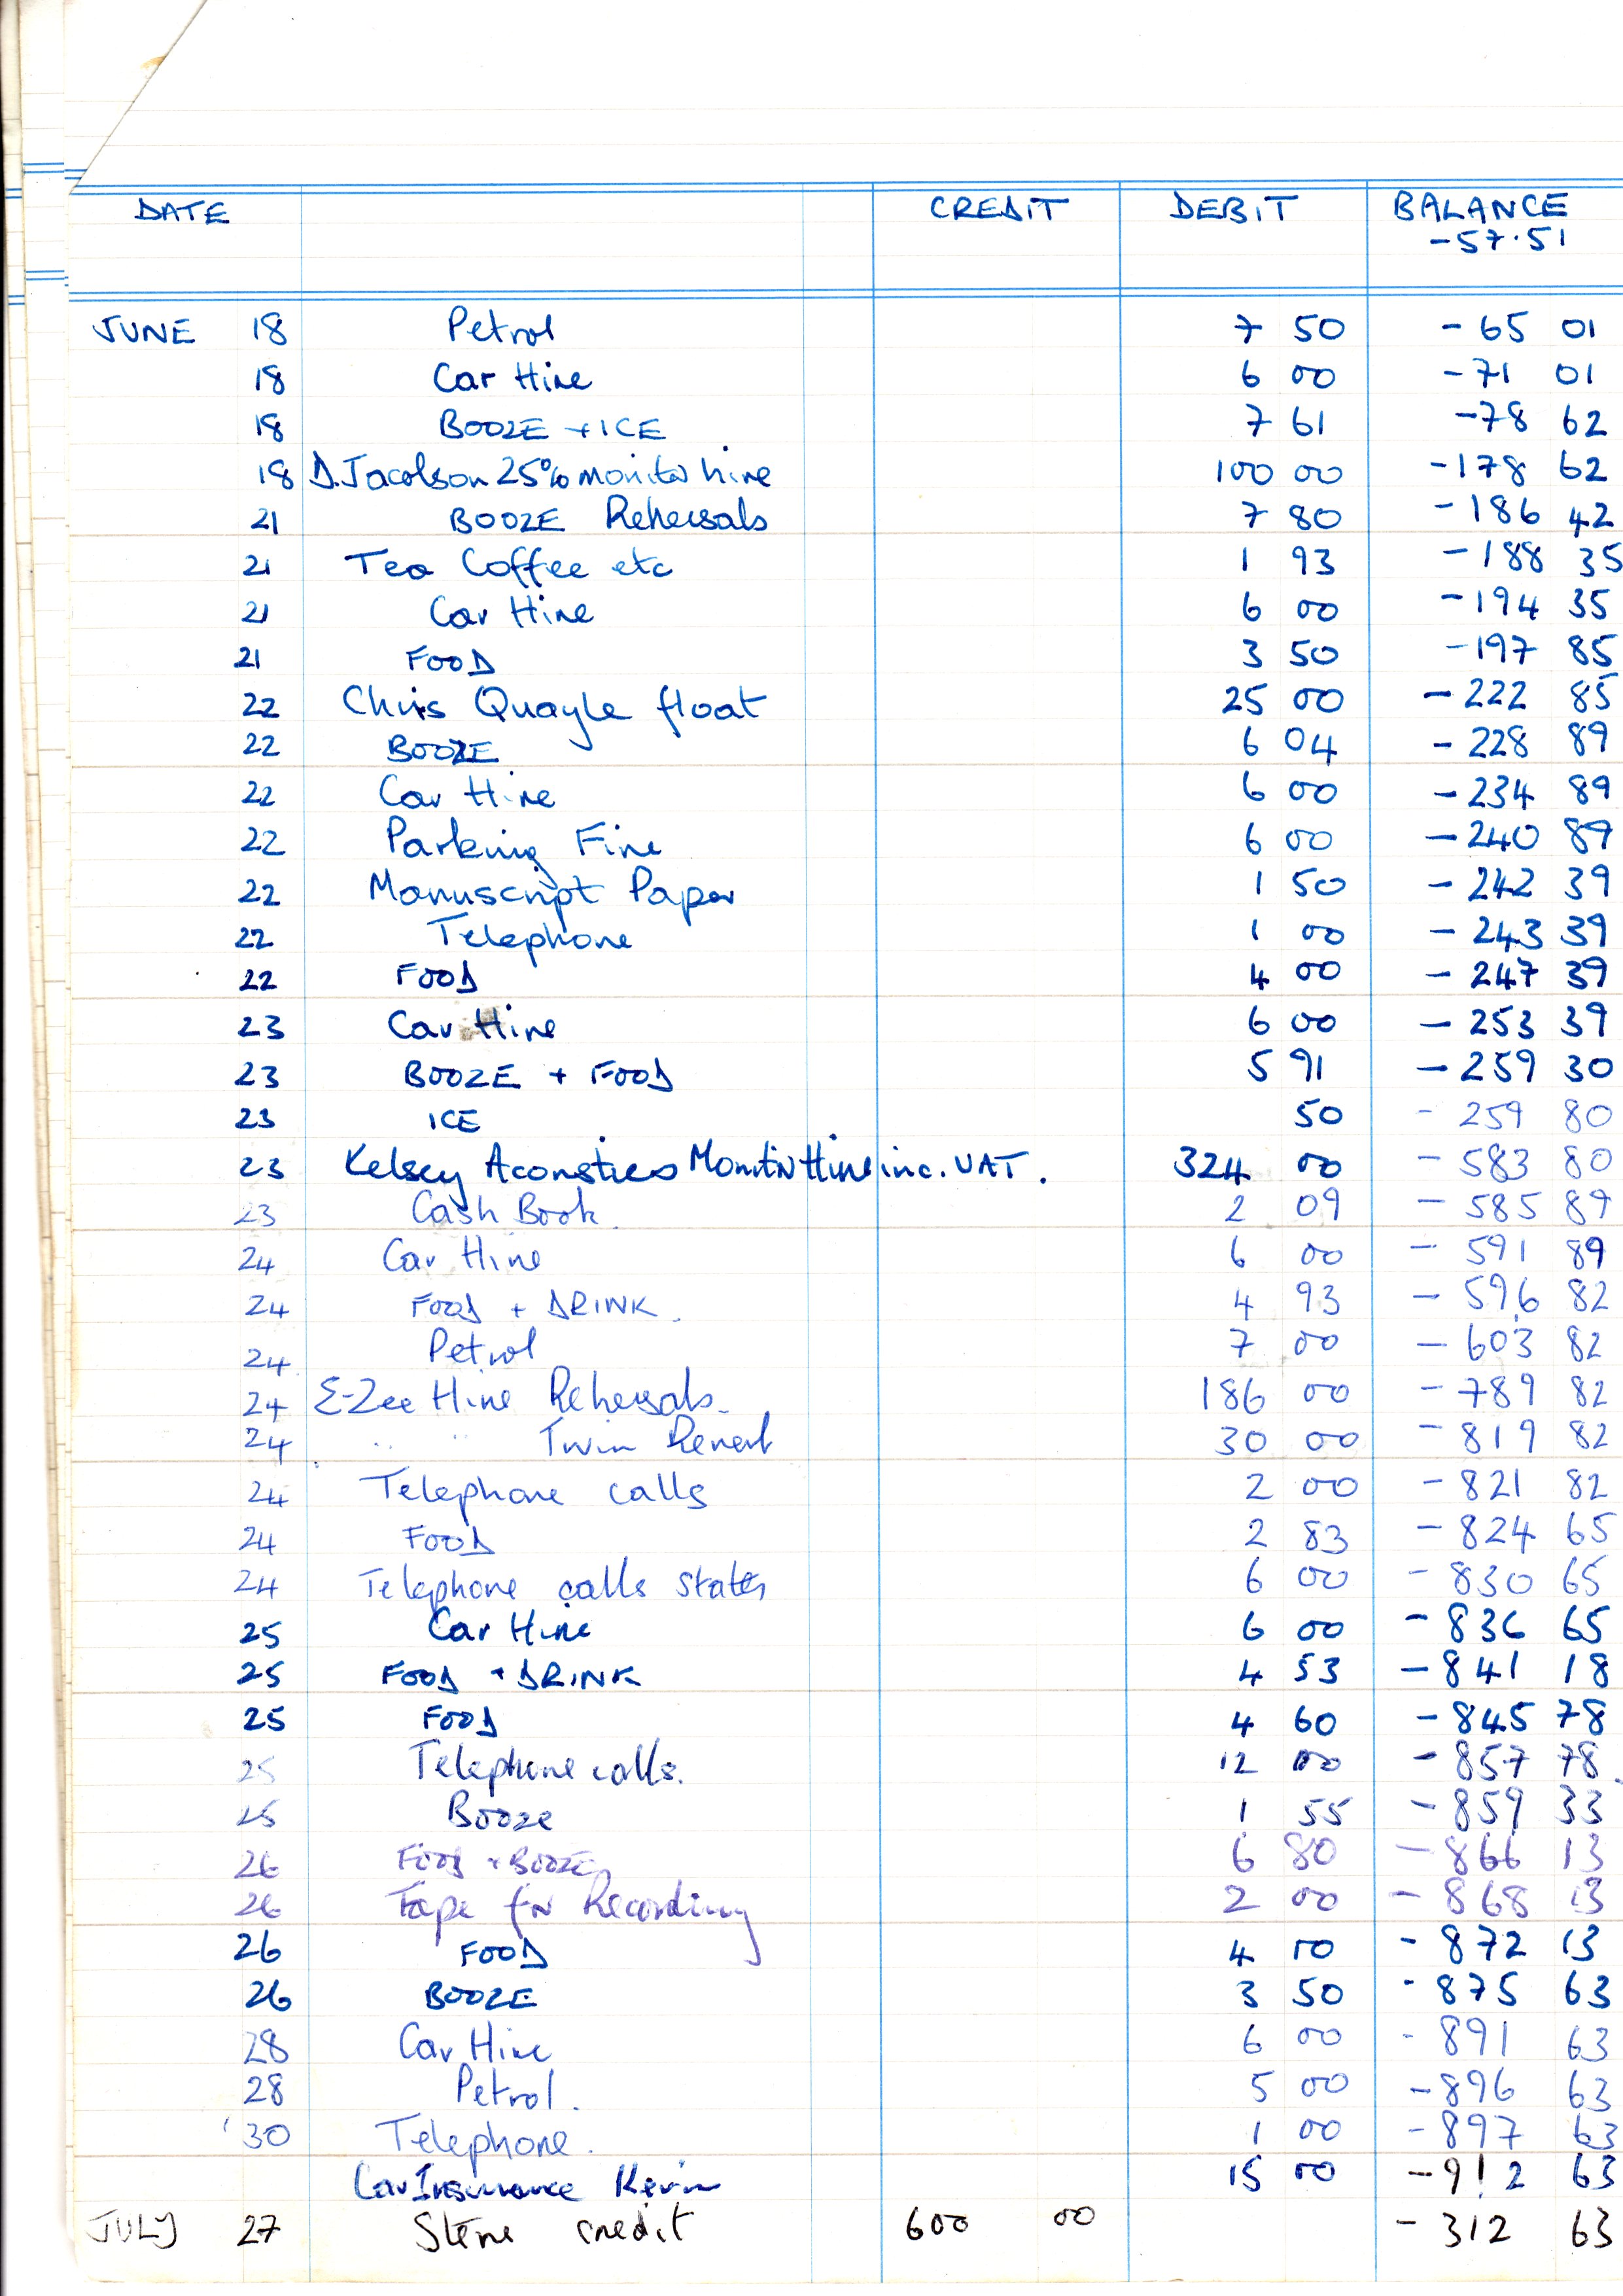 DATE CREDIT DEBIT BALANCE
-57.51
JUNE 18 Petrol 7 50 -65 01
18 Car Hire 6 00 -71 01
18 BOOZE + ICE 7 61 -78 62
18 D.Jacobson 25% monitor hire 100 00 -178 62
21 BOOZE Rehersals 7 80 -186 42
21 Tea Coffee etc 1 93 -188 35
21 Car Hire 6 00 -194 35
21 FOOD 3 50 -197 85
22 Chris Quayle float 25 00 -222 85
22 BOOZE 6 04 -228 89
22 Car Hire 6 00 -234 89
22 Parking Fine 6 00 -240 89
22 Manuscript Paper 1 50 -242 39
22 Telephone 1 00 -243 39
22 FOOD 4 00 -247 39
23 Car Hire 6 00 -253 39
23 BOOZE + FOOD 5 91 -259 30
23 ICE 50 -259 80
23 Kelsey Acoustics Monitor Hire inc. VAT. 324 00 -583 80
23 Cash Book. 2 09 -585 89
24 Car Hire 6 00 -591 89
24 FOOD + DRINK. 4 93 -596 82
24 Petrol 7 00 -603 82
24 E-Zee Hire Rehersals. 186 00 -789 82
24 " " Twin Reverb 30 00 -819 82
24 Telephone calls 2 00 -821 82
24 FOOD 2 83 -824 65
24 Telephone calls States 6 00 -830 65
25 Car Hire 6 00 -836 65
25 FOOD + DRINK 4 53 -841 18
25 FOOD 4 60 -845 78
25 Telephone calls. 12 00 -857 78
25 Booze 1 55 -859 33
26 FOOD + BOOZE 6 80 -866 13
26 Tape for Recording 2 00 -868 13
26 FOOD 4 00 -872 13
26 BOOZE 3 50 -875 63
28 Car Hire 6 00 -891 63
28 Petrol. 5 00 -896 63
30 Telephone. 1 00 -897 63
Car Insurance Kevin 15 00 -912 63
JULY 27 Steve credit 600 00 -312 63